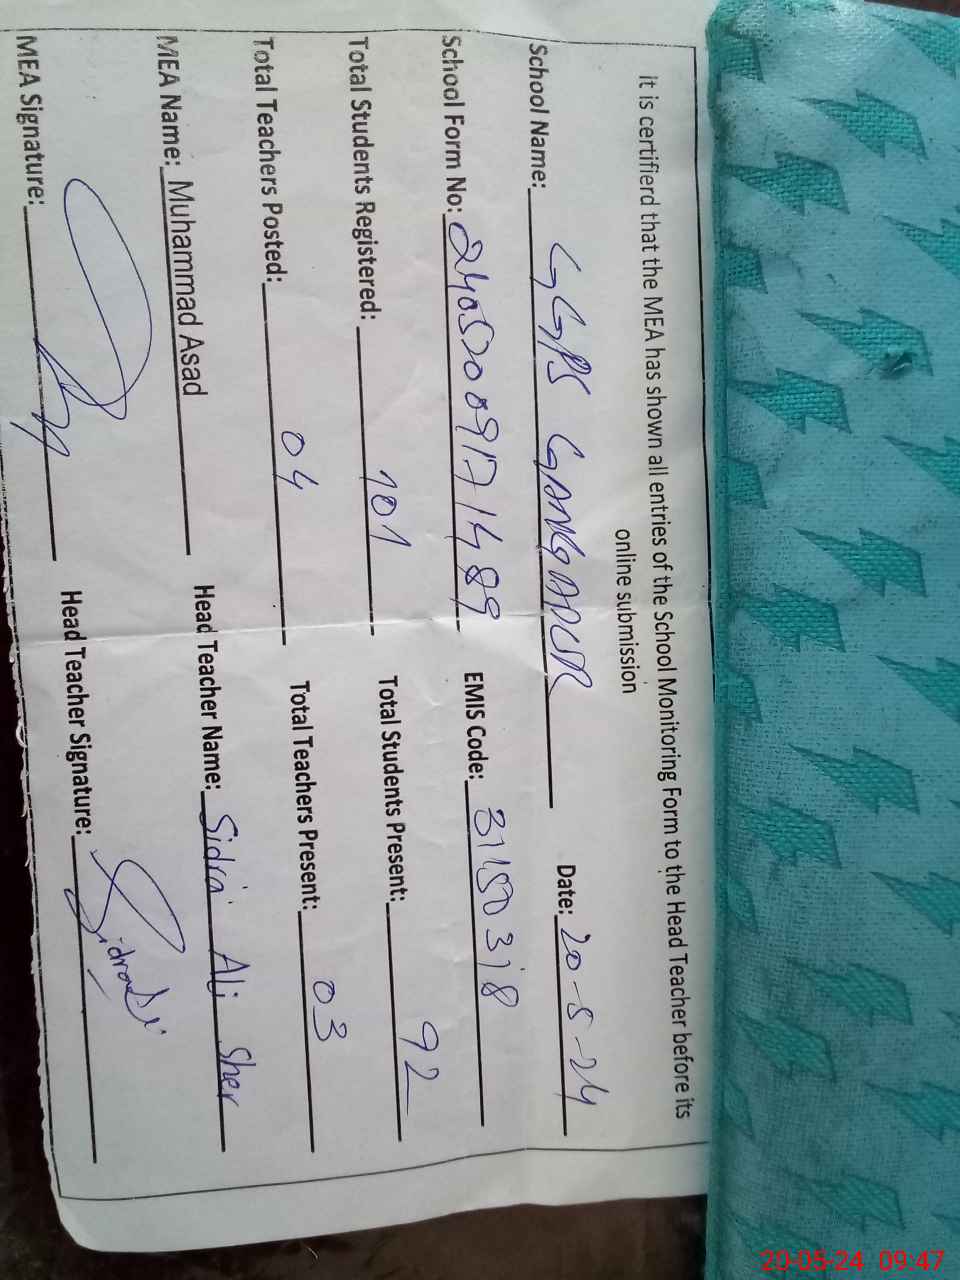 it is certifierd that the MEA has shown all entries of the School Monitoring Form to the Head Teacher before its
online submission
School Name: GGPS GANGAPUR Date: 20-5-24
School Form No: 24052009171489 EMIS Code: 31150318
Total Students Registered: 101 Total Students Present: 92
Total Teachers Posted: 04 Total Teachers Present: 03
MEA Name: Muhammad Asad Head Teacher Name: Sidra Ali Sher
MEA Signature: Head Teacher Signature:
20-05-24 09:47